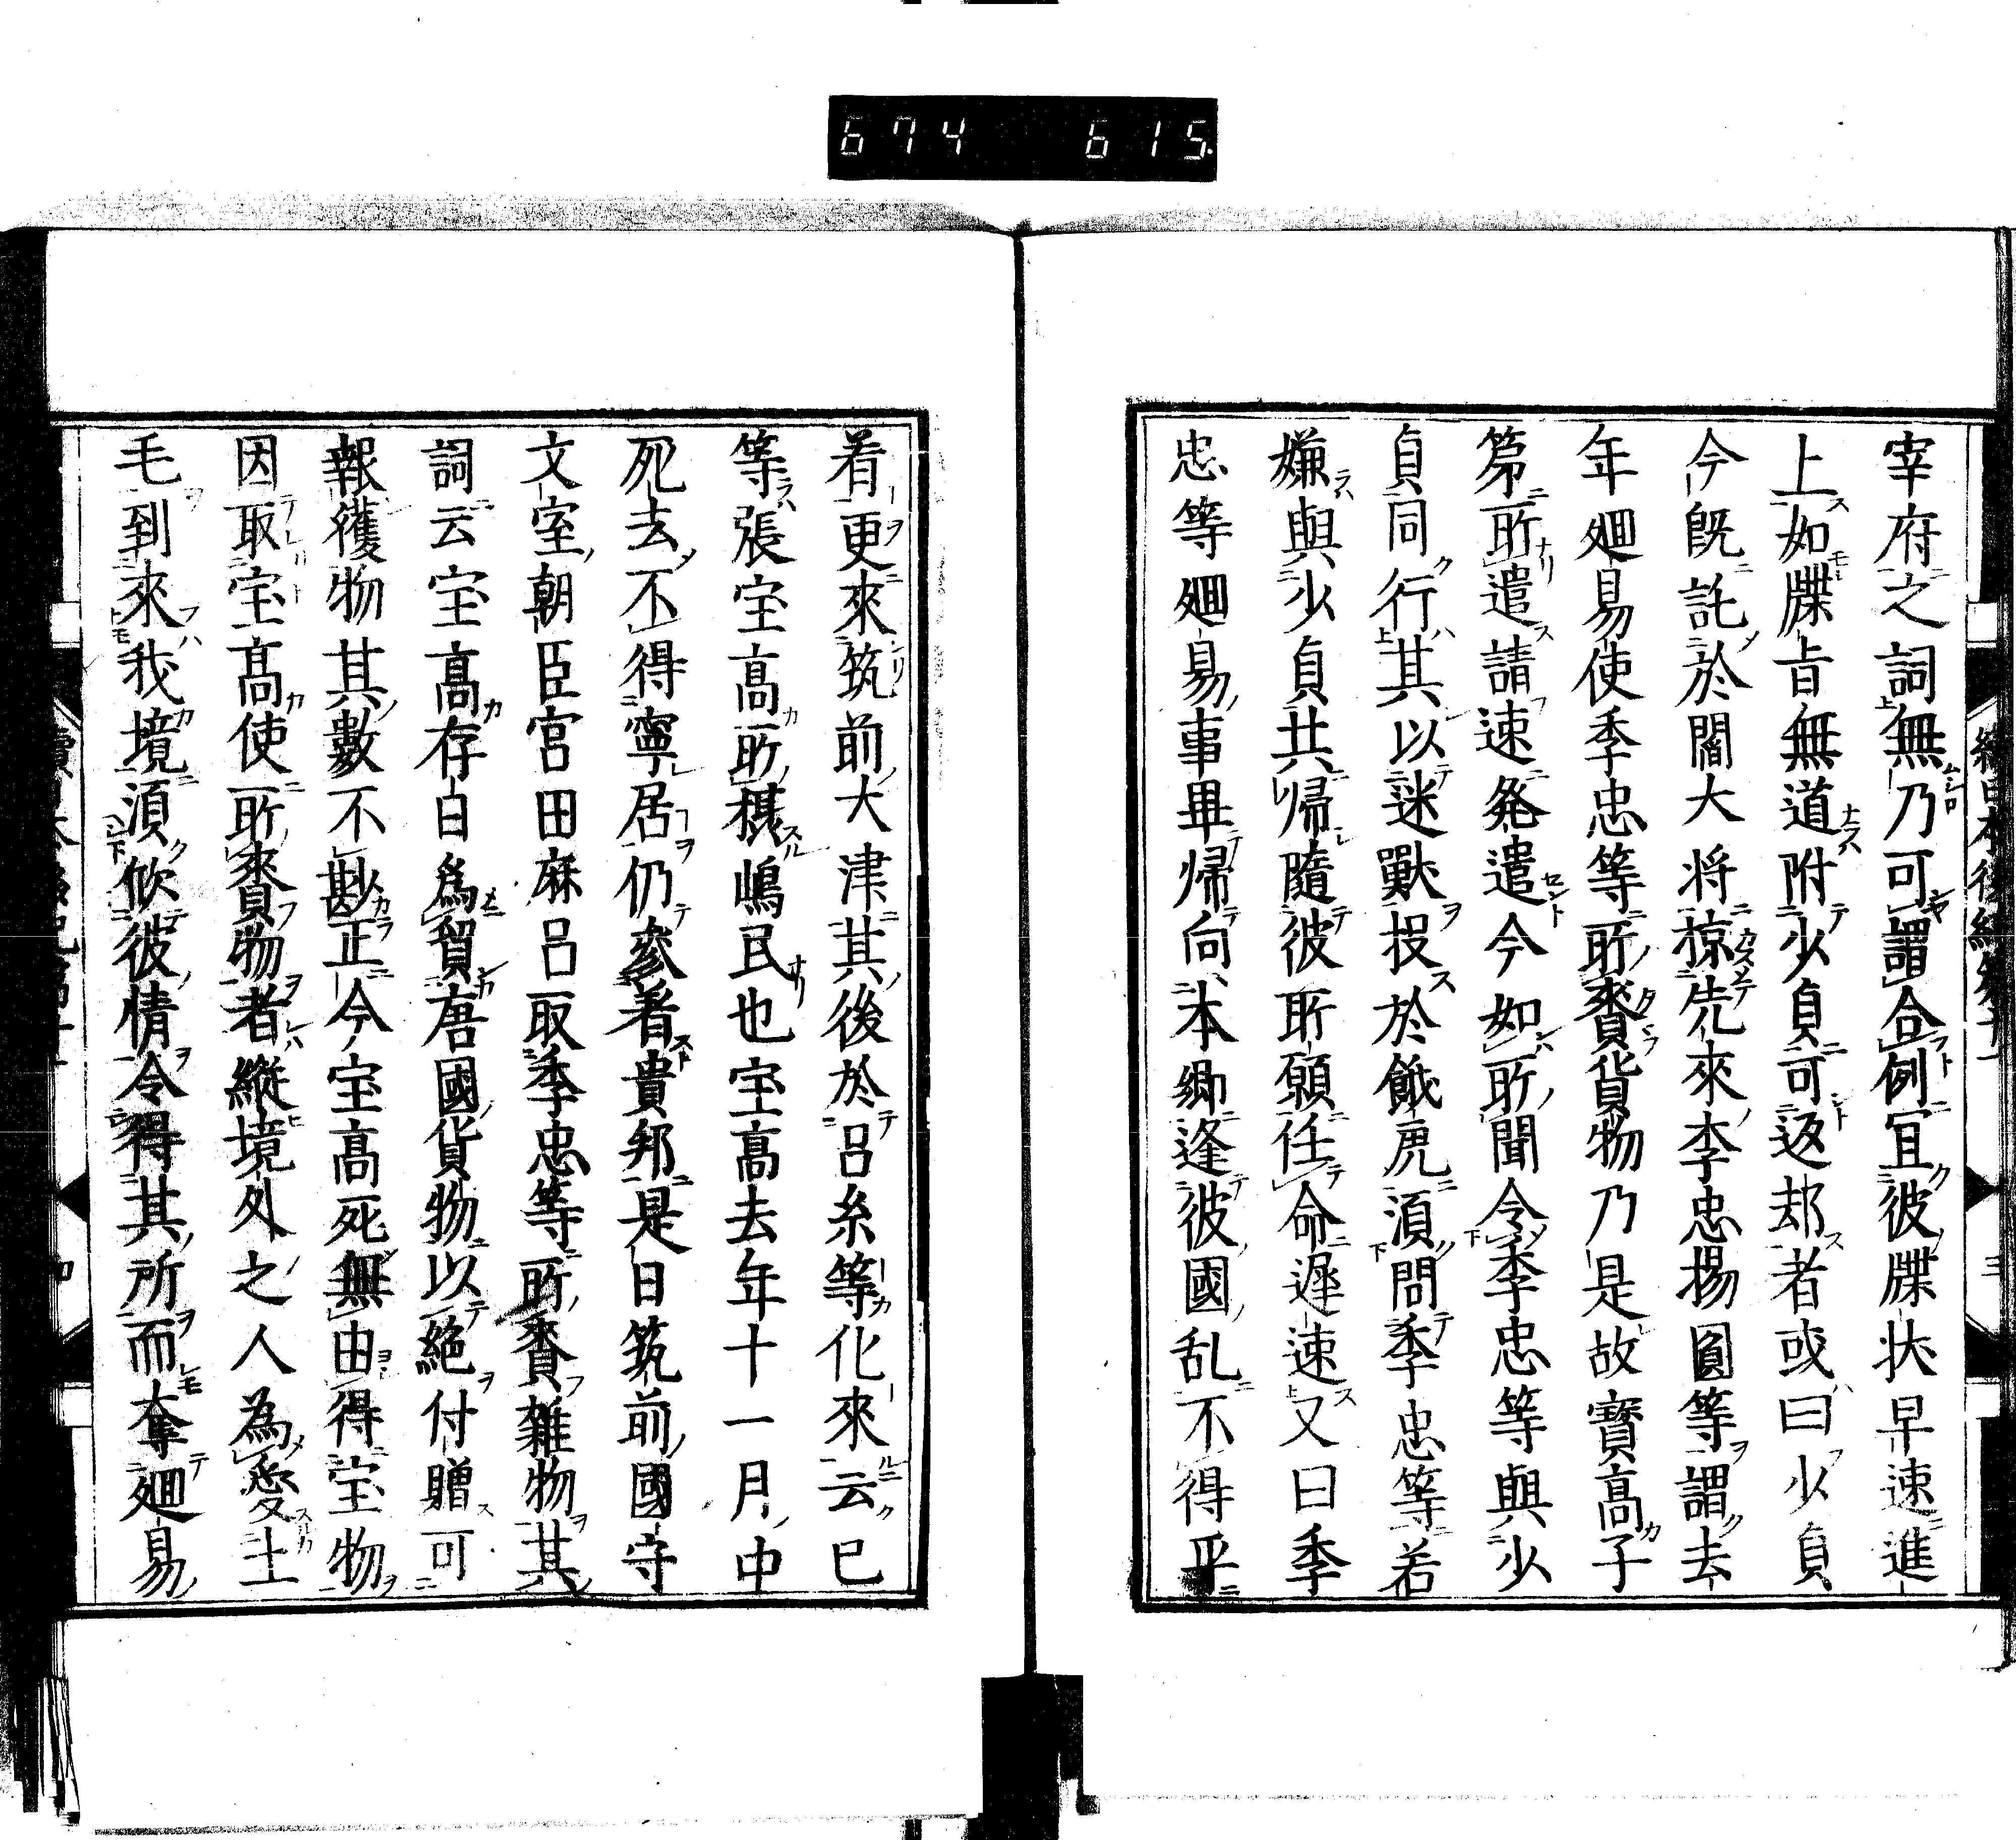 674 615
宰府之詞無乃可謂合例冝彼牒状早速進
上如牒旨無道附少貞可返却者或曰少貞
今既託於閻大将掠先來李忠揚圓等謂去
年廻易使李忠等所賚貨物乃是故寳髙子
第所遣請速発遣今如所聞令李忠等與少
貞同行其以迷獸投於餓虎湏問李忠等若
嫌與少貞共帰隨彼所願任命遲速又曰李
忠等廻易事畢帰向本郷逢彼國乱不得平
着更來筑前大津其後於呂糸等化來云已
等張宝髙所㯕嶋民也宝髙去年十一月中
死去不得寧居仍叅着貴邦是日筑前國守
文室朝臣宮田麻呂取李忠等所賚雜物其
詞云宝髙存日為貿唐國貨物以絁付贈可
報獲物其數不尠正今宝髙死無由得宝物
因取宝髙使所賚物者縱境外之人為愛土
毛到來我境湏欣彼情令得其所而奪廻易